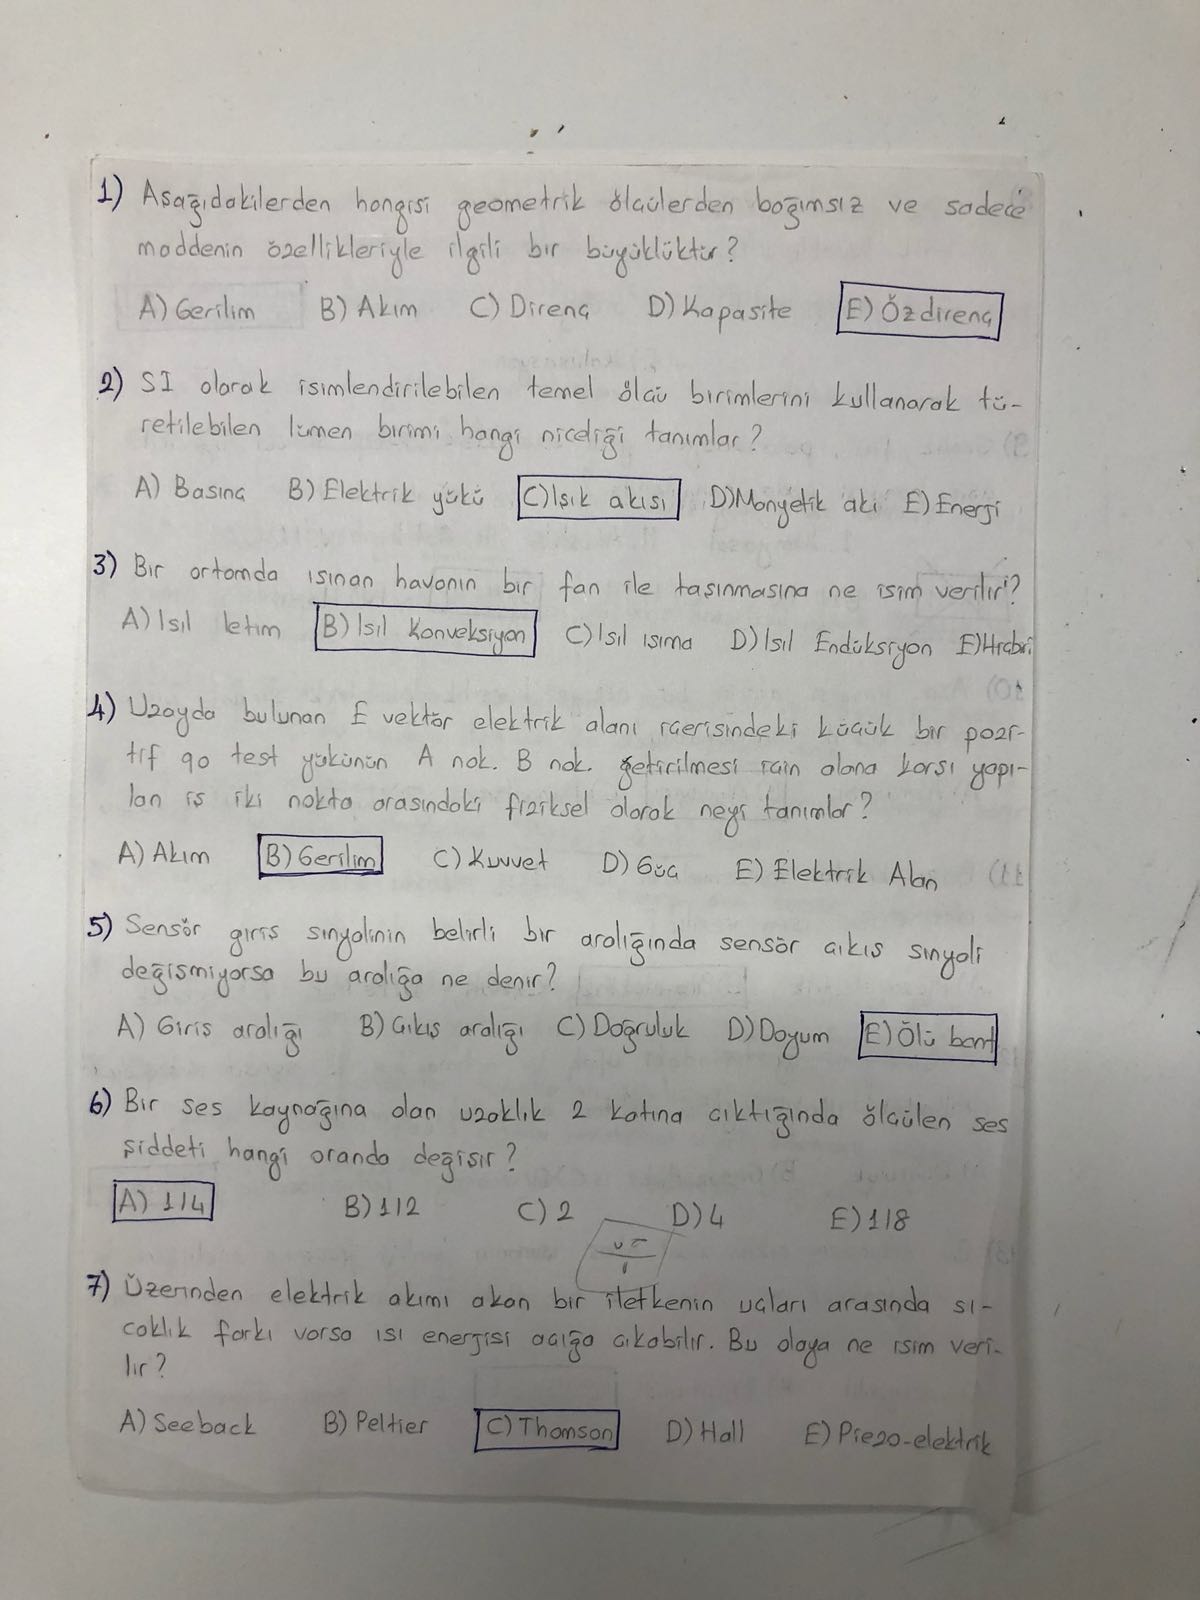 1) Aşağıdakilerden hangisi geometrik ölçülerden bağımsız ve sadece
maddenin özellikleriyle ilgili bir büyüklüktür?
A) Gerilim B) Akım C) Direnç D) Kapasite E) Özdirenç
2) SI olarak isimlendirilebilen temel ölçü birimlerini kullanarak tü-
retilebilen lümen birimi hangi niceliği tanımlar?
A) Basınç B) Elektrik yükü C) Işık akısı D) Manyetik akı E) Enerji
3) Bir ortamda ısınan havanın bir fan ile taşınmasına ne isim verilir?
A) Isıl İletim B) Isıl Konveksiyon C) Isıl ışıma D) Isıl Endüksiyon E) Hiçbiri
4) Uzayda bulunan E vektör elektrik alanı içerisindeki küçük bir pozi-
tif q0 test yükünün A nok. B nok. getirilmesi için alana karşı yapı-
lan iş iki nokta arasındaki fiziksel olarak neyi tanımlar?
A) Akım B) Gerilim C) Kuvvet D) Güç E) Elektrik Alan
5) Sensör giriş sinyalinin belirli bir aralığında sensör çıkış sinyali
değişmiyorsa bu aralığa ne denir?
A) Giriş aralığı B) Çıkış aralığı C) Doğruluk D) Doyum E) Ölü bant
6) Bir ses kaynağına olan uzaklık 2 katına çıktığında ölçülen ses
şiddeti hangi oranda değişir?
A) 1/4 B) 1/2 C) 2 D) 4 E) 1/8
7) Üzerinden elektrik akımı akan bir iletkenin uçları arasında sı-
caklık farkı varsa ısı enerjisi açığa çıkabilir. Bu olaya ne isim veri-
lir?
A) Seeback B) Peltier C) Thomson D) Hall E) Piezo-elektrik